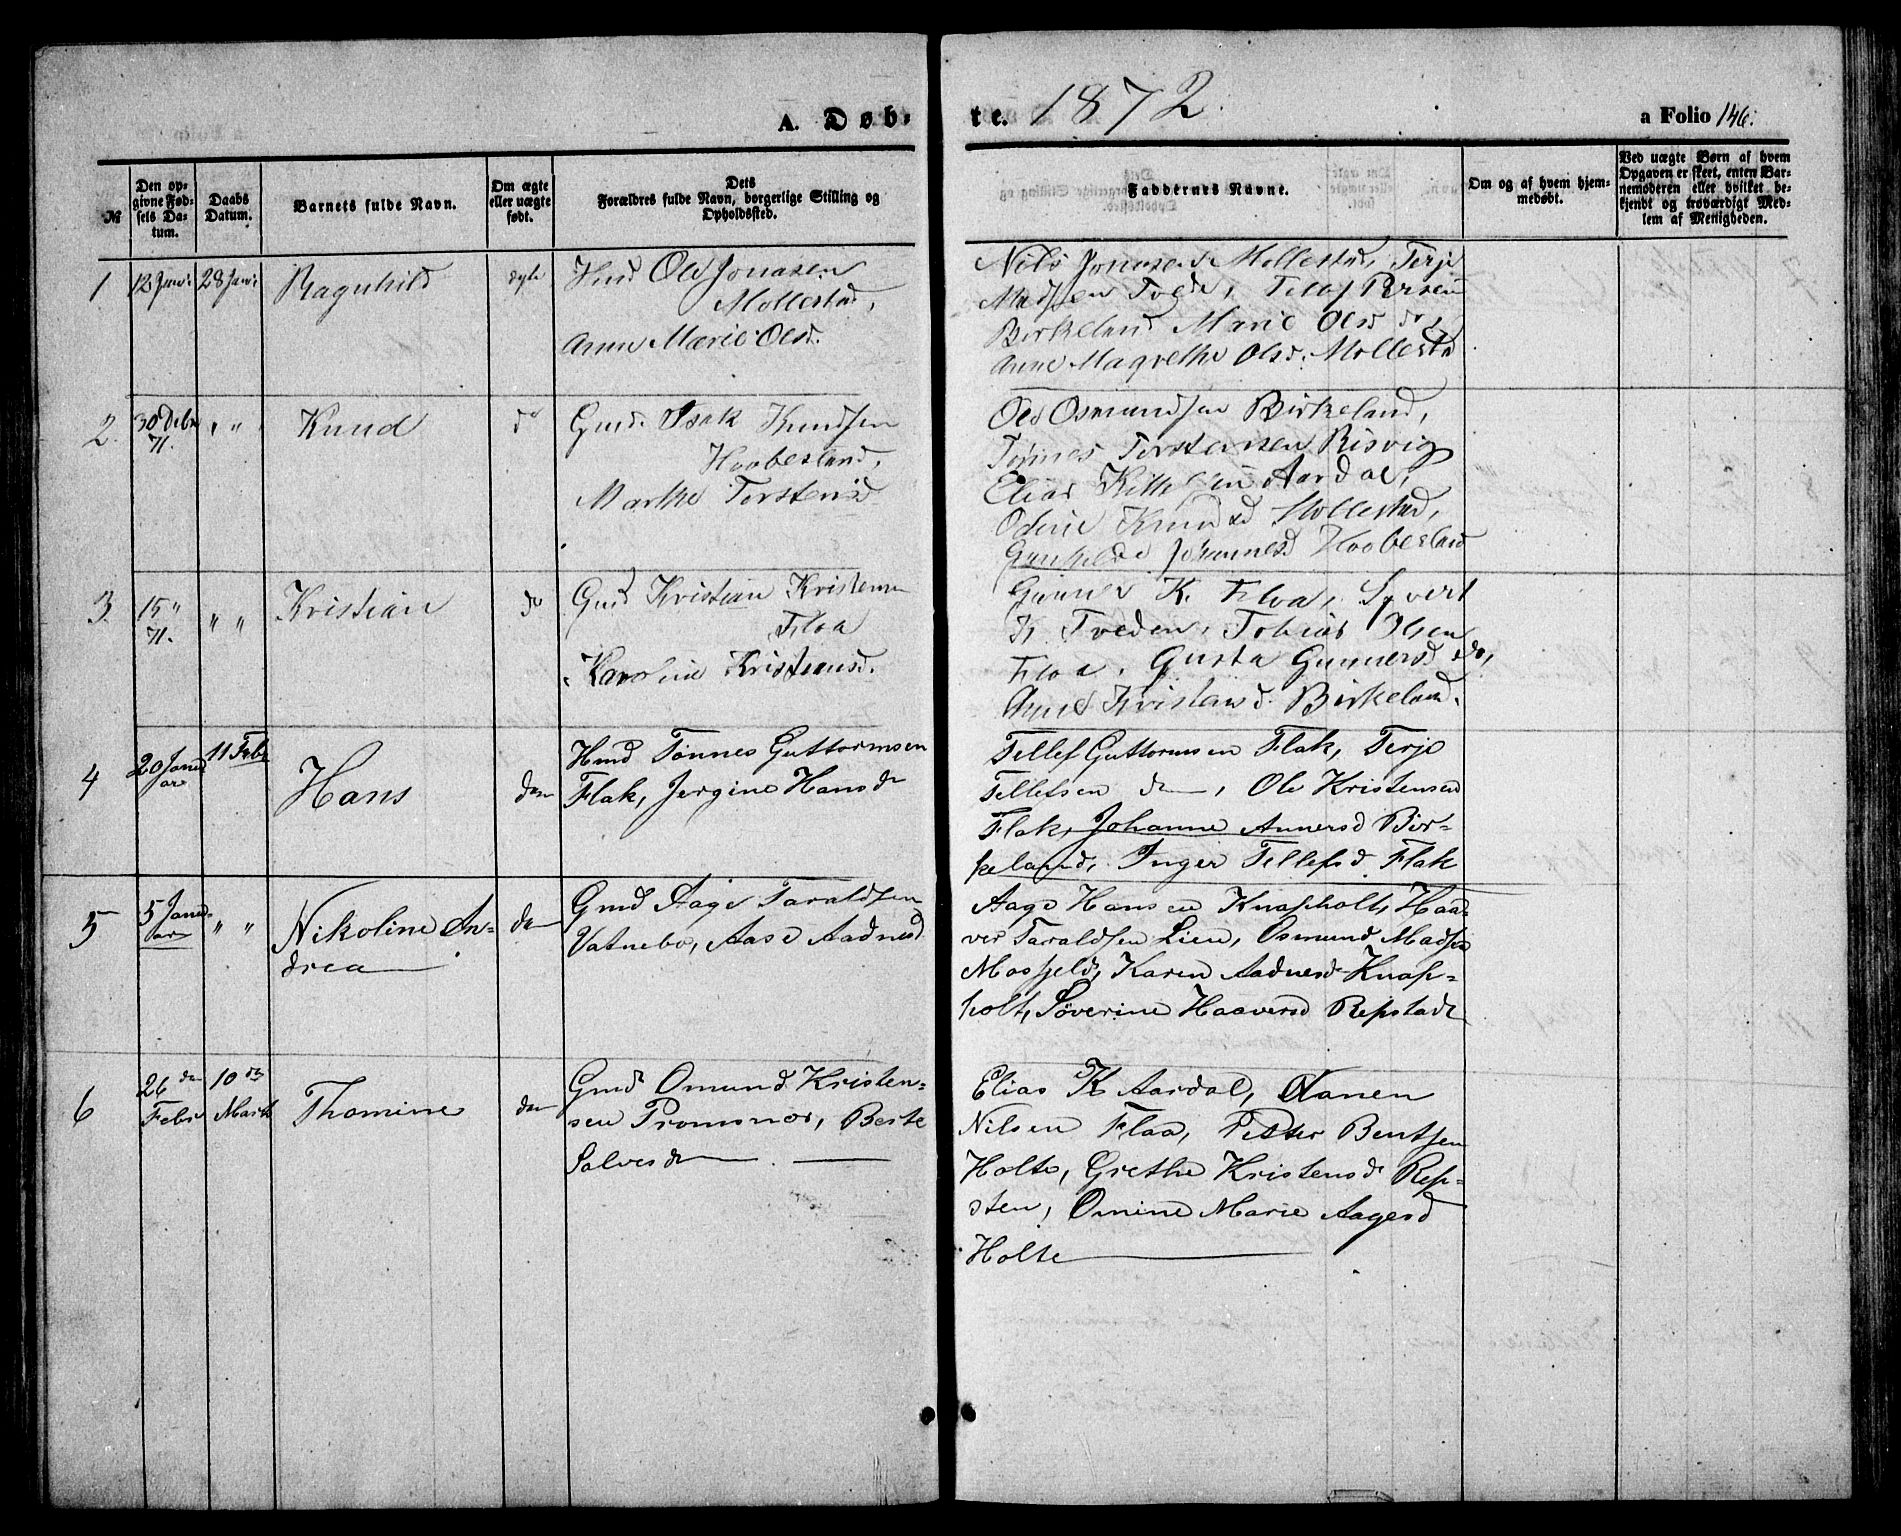 A. Døb-
te. 1872.
a Folio 146.
№
Den op-
givne Fød-
sels Da-
tum.
Daabs
Datum.
Barnets fulde Navn.
Om ægte
eller uægte
født.
Dets
Forældres fulde Navn, borgerlige Stilling og
Opholdssted.
Faddernes Navne.
Om og af hvem hjem-
medøbt.
Ved uægte Børn af hvem
Opgaven er skeet, enten Bar-
nemoderen eller hvilket be-
kjendt og troværdigt Med-
lem af Menigheden.
1 12 Janr: 28 Janr: Ragnhild
Ole Jonasen
Mollestad,
Anne Marie Olsd.
Nils Jonasen Mollestad, Terje
Madssen Tvede,
Birkeland Marie Olsd do,
Anne Magrethe Olsd. Mollestad
2. 30 Debr
71. " " Knud do Gmd. Isak Knudsen
Hoobesland,
Marthe Torstensd
Ole Osmundsen Birkeland,
Tønnes Torstensen Risvig
Elias Aardal,
Knudsd Mollestad,
Johannesd Hoobesland
3. 15 "
71. " " Kristian do Gmd Kristian Kristensen
Floa
Karoline Kristiansd.
Gunner K. Floa, Syvert
K. Tveden, Tobias Olsen
Floa, Gusta Gunnersd do,
Anne Kristensd. Birkeland.
4 20 Janu
ar 11 Febr Hans do Hmd Tønnes Guttormsen
Flak, Jergine Hansd
Tellef Guttormsen Flak, Terje
Tellefsen do, Ole Kristensen
Flak, Johanne Annersd Bir-
keland, Inger Tellefsd. Flak
5 5 Janu-
ar " " Nikoline An-
drea do Gmd Aage Taraldsen
Vatnebo, Aase Aadnesd
Aage Hansen Knapholt, Haa-
ver Taraldsen Lien, Osmund Madsen
Mosfjeld, Karen Aadnesd Knap-
holt, Søverine Haaversd Repstad
6 26 de
Febr 10 de
Marts Thomine do Gmd Omund Kristen-
sen Promsnes, Berte
Salvesd
Elias K Aardal, Aanen
Nilsen Flaa, Petter Bentsen
Holte, Grethe Kristensd Rep-
sten, Omine Marie Aagesd
Holte